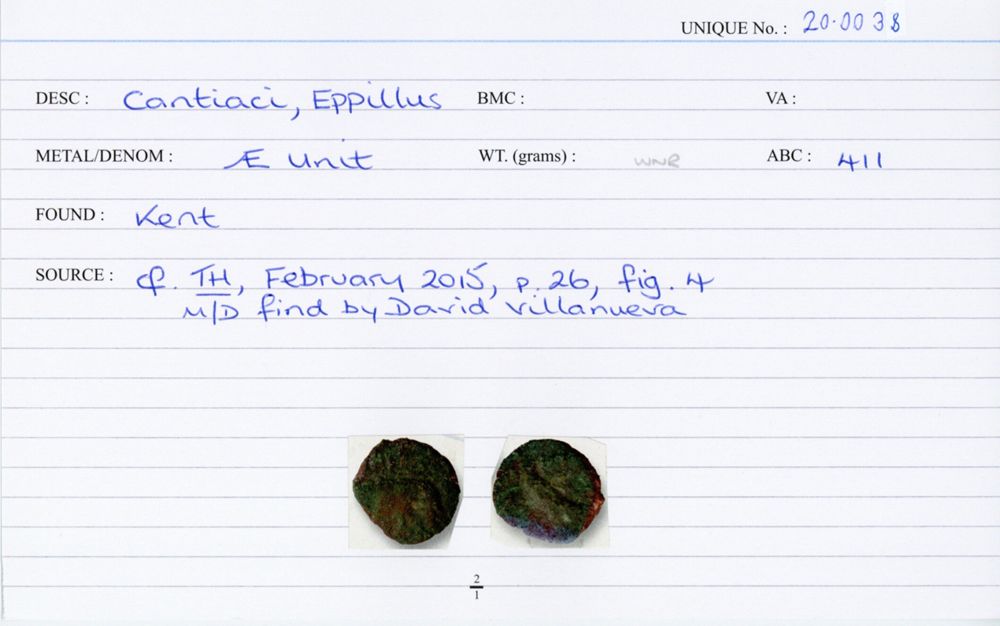 UNIQUE No. : 20.0038
DESC : Cantiaci, Eppillus BMC : VA :
METAL/DENOM : Æ Unit WT. (grams) : WNR ABC : 411
FOUND : Kent
SOURCE : cf. TH, February 2015, p. 26, fig. 4
M/D find by David Villanueva
2
1